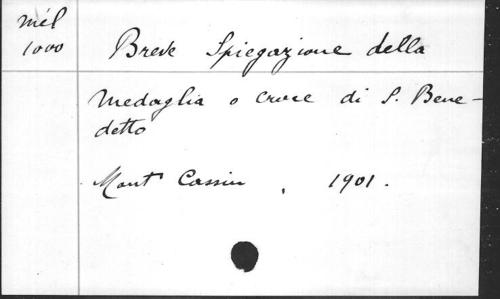 mél
1000
Breve Spiegazione della
Medaglia o croce di S. Bene-
detto
Mont Cassin, 1901.